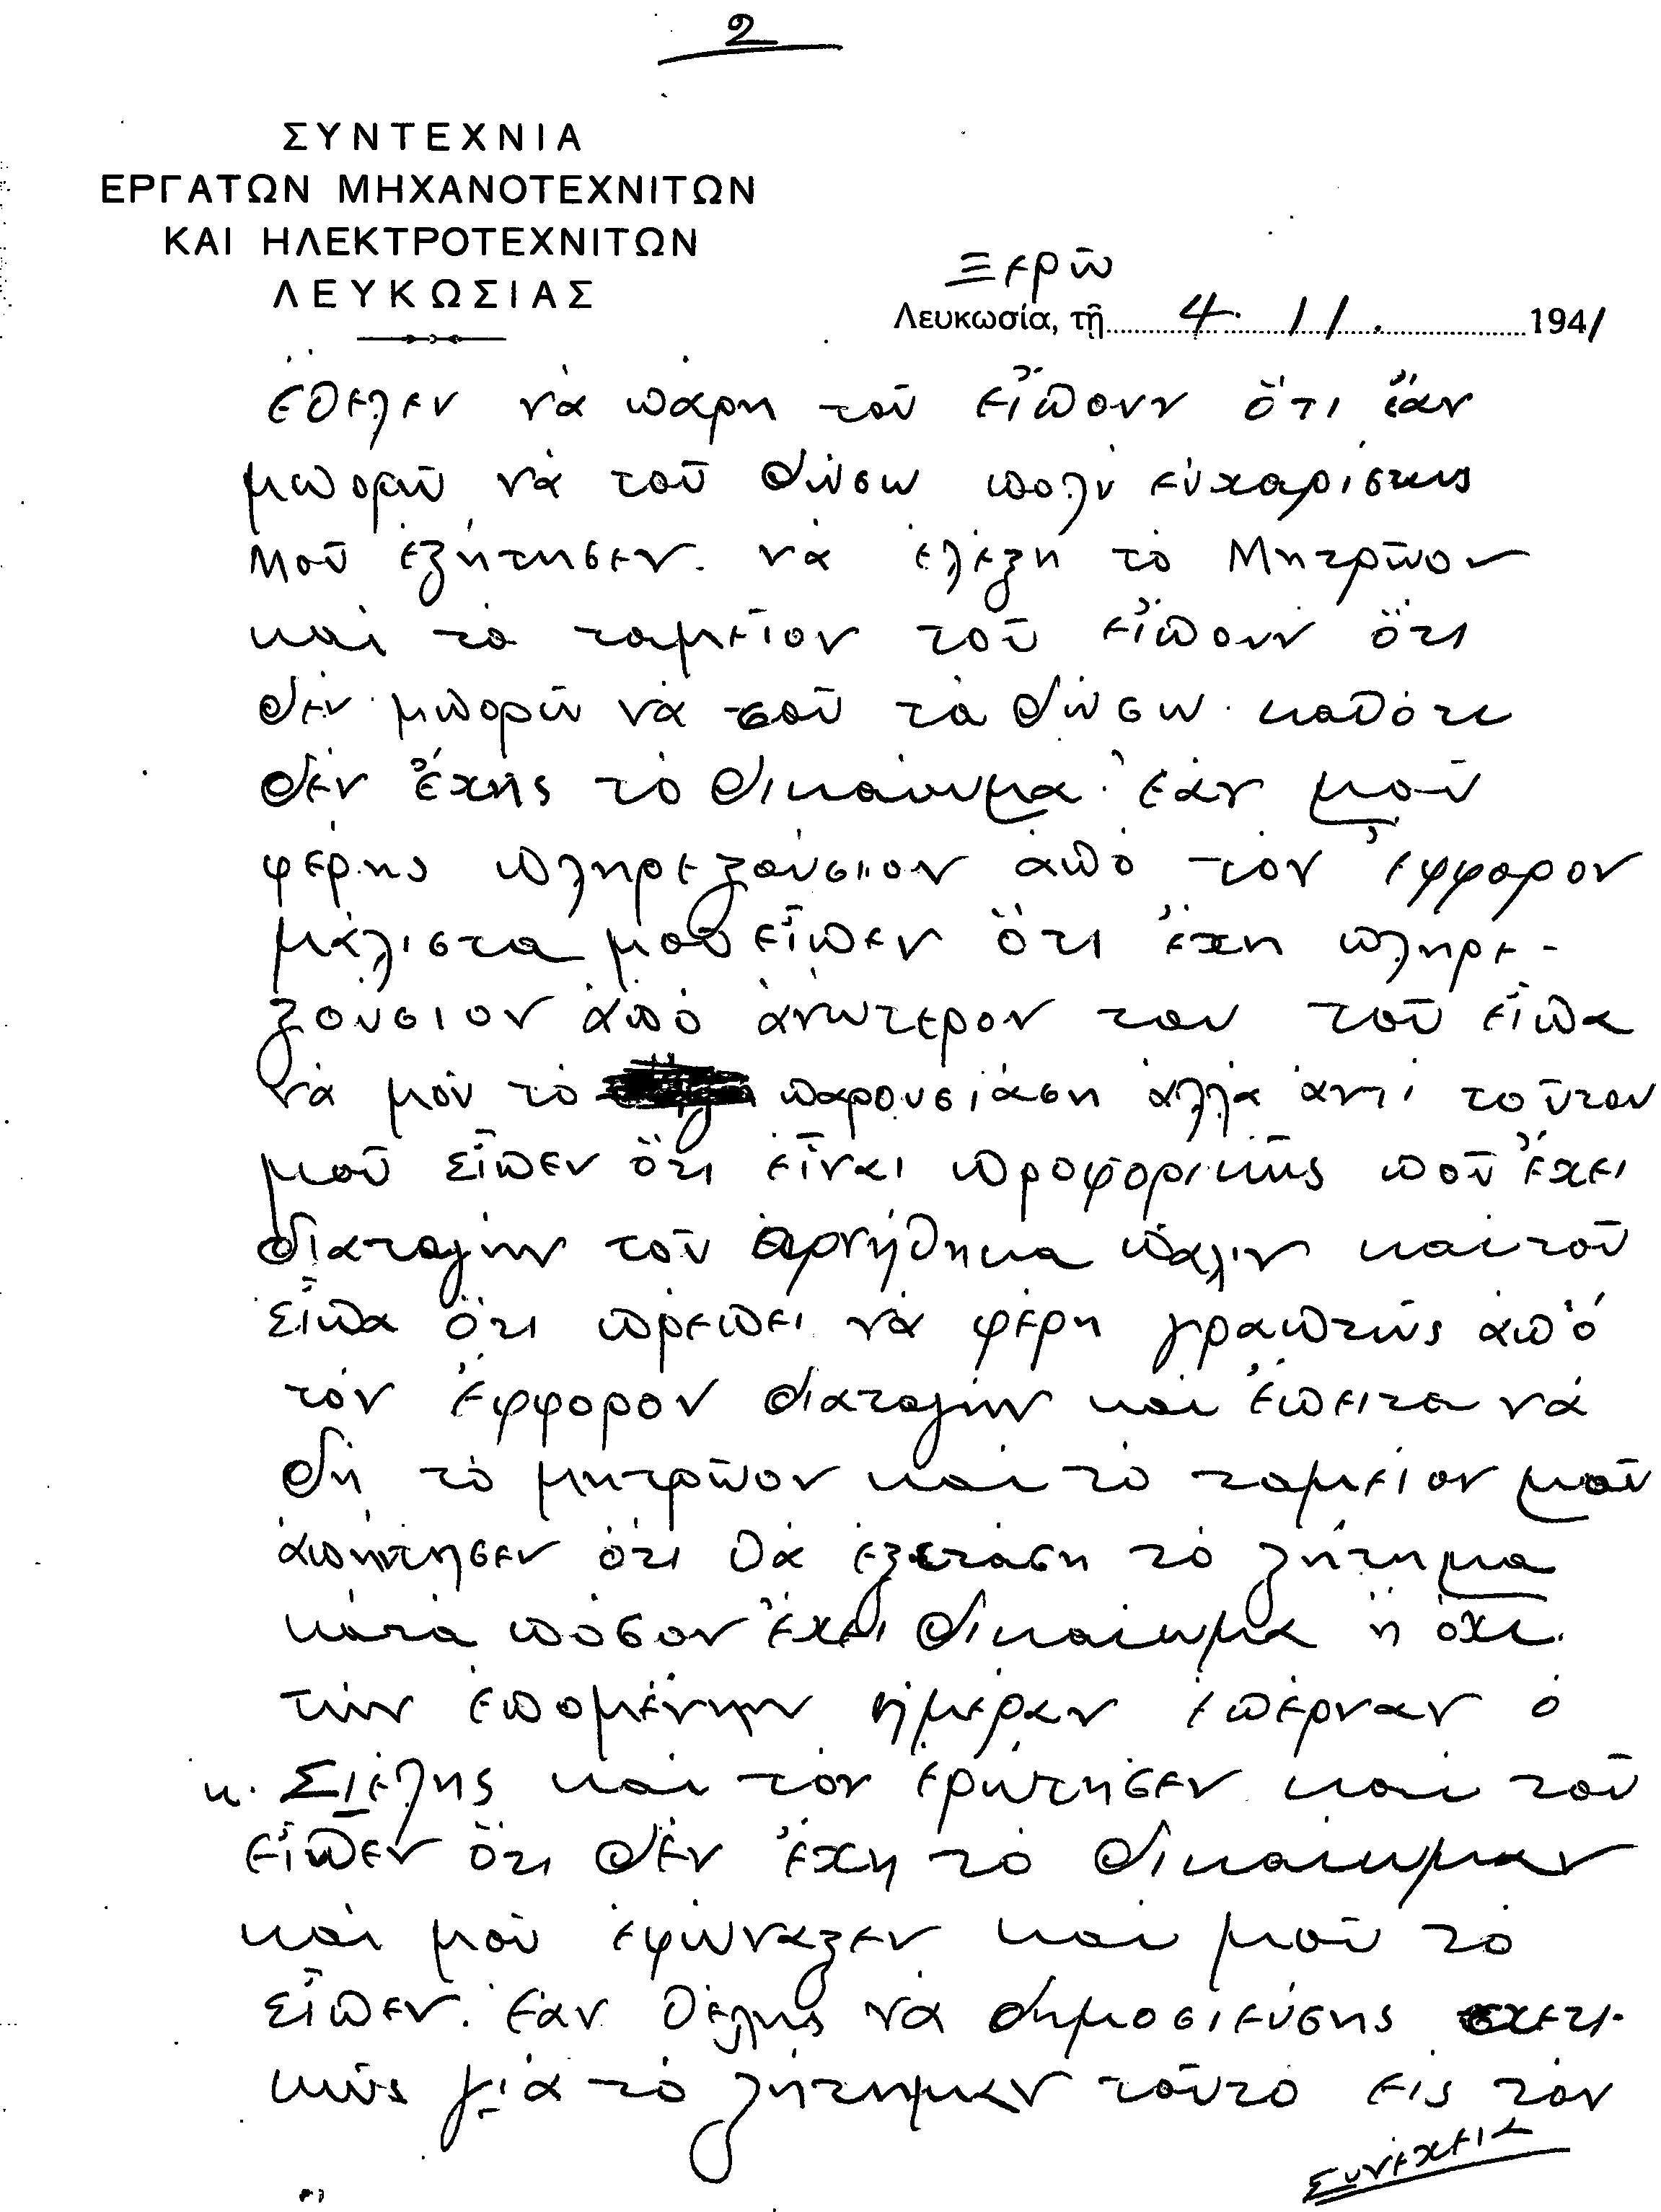 2
ΣΥΝΤΕΧΝΙΑ
ΕΡΓΑΤΩΝ ΜΗΧΑΝΟΤΕΧΝΙΤΩΝ
ΚΑΙ ΗΛΕΚΤΡΟΤΕΧΝΙΤΩΝ
ΛΕΥΚΩΣΙΑΣ
Ξερῶ
Λευκωσία, τῇ 4. 11. 1941
ἔθελεν νὰ πάρη τοῦ εἶπουν ὅτι ἐὰν
μπορῶ νὰ τοῦ δώσω πολὺ εὐχαρίστως
Μοῦ ἐζήτησεν. νὰ ἐλέξη τὸ Μητρῶον
καὶ τὸ ταμεῖον τοῦ εἶπουν ὅτι
δὲν μπορῶ νὰ σοῦ τὰ δώσω καθότι
δὲν ἔχης τὸ δικαίωμα ἐὰν μοῦ
φέρης πληρεξούσιον ἀπὸ τὸν ἔφφορον
μάλιστα μοῦ εἶπεν ὅτι ἔχη πληρε-
ξούσιον ἀπὸ ἀνώτερον του τοῦ εἶπα
νὰ μοὺ τὸ παρουσιάση ἀλλὰ ἀντὶ τοῦτου
μοῦ εἶπεν ὅτι εἶναι προφορικῶς ποῦ ἔχει
διαταγὴν τοῦ ἀρνήθηκα πάλιν καὶ τοῦ
εἶπα ὅτι πρέπει νὰ φέρη γραπτῶς ἀπὸ
τὸν ἔφφορον διαταγὴν καὶ ἔπειτα νὰ
δῆ τὸ μητρῶον καὶ τὸ ταμεῖον μοῦ
ἀπήντησεν ὅτι θὰ ἐξετάση τὸ ζήτημα
κατὰ πόσον ἔχει δικαίωμα ἢ ὄχι.
τὴν ἑπομένην ἡμέραν ἐπέρναν ὁ
κ. Σιέλης καὶ τὸν ἐρώτησεν καὶ τοῦ
εἶπεν ὅτι δὲν ἔχη τὸ δικαίωμαν
καὶ μοῦ ἐφώναξεν καὶ μοῦ τὸ
εἶπεν. ἐὰν θέλης νὰ δημοσιεύσης σχετι-
κῶς γιὰ τὸ ζήτημαν τοῦτο εἰς τὸν
Συνέχεια